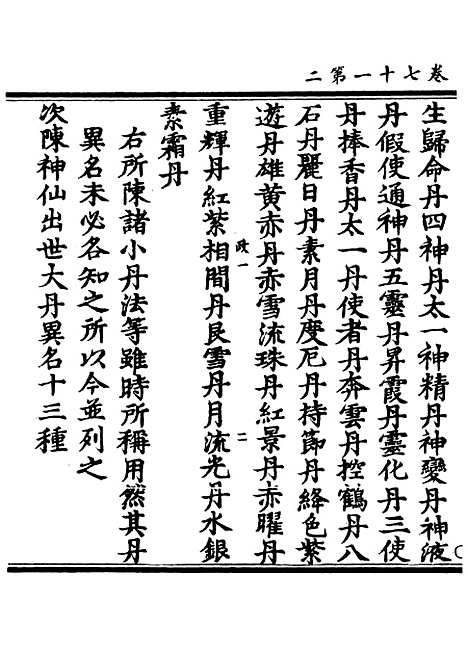 卷七十一第二
生歸命丹四神丹太一神精丹神變丹神液
丹假使通神丹五靈丹昇霞丹靈化丹三使
丹捧香丹太一丹使者丹奔雲丹控鶴丹八
石丹麗日丹素月丹度厄丹持節丹絳色紫
遊丹雄黃赤丹赤雪流珠丹紅景丹赤曜丹
政一
二
重輝丹紅紫相間丹艮雪丹月流光丹水銀
素霜丹
右所陳諸小丹法等雖時所稱用然其丹
異名未必各知之所以今並列之
次陳神仙出世大丹異名十三種